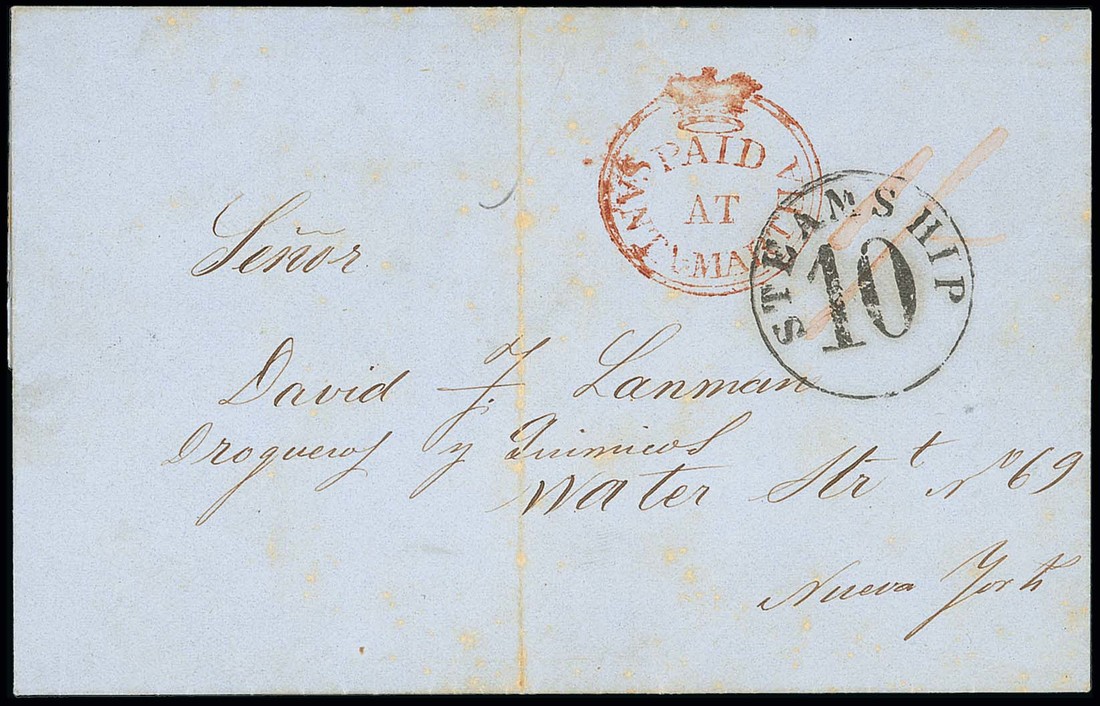 PAID
AT
SANTA-MARTHA
STEAMSHIP
10
Señor
David J. Lanman
Drogueros y Quimicos
Water Str.t No 69
Nueva York